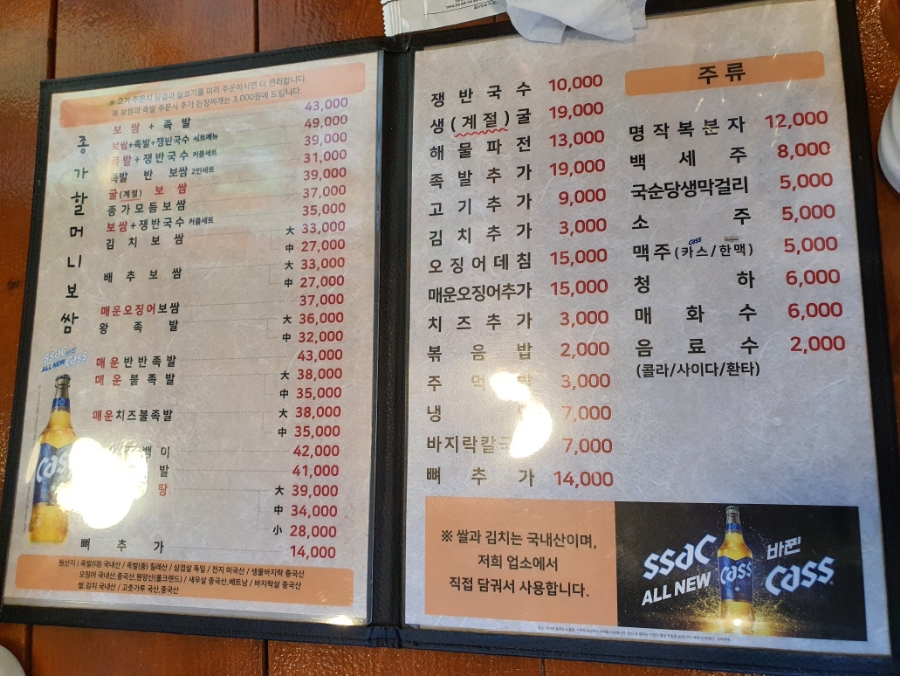 ※ 고기 주문시 삼겹과 살코기를 미리 주문하시면 더 편리합니다
※ 보쌈과 족발 주문시 추가 된장찌개는 3,000원에 드립니다
종가할머니보쌈
보쌈 + 족발 43,000
보쌈+족발+쟁반국수 세트메뉴 49,000
족발+쟁반국수 커플세트 39,000
족발 반 보쌈 2인세트 31,000
굴(계절) 보쌈 39,000
종가모듬보쌈 37,000
보쌈+쟁반국수 커플세트 35,000
김치보쌈 大 33,000
中 27,000
배추보쌈 大 33,000
中 27,000
매운오징어보쌈 37,000
왕족발 大 36,000
中 32,000
매운반반족발 43,000
매운불족발 大 38,000
中 35,000
매운치즈불족발 大 38,000
中 35,000
이 42,000
발 41,000
탕 大 39,000
中 34,000
小 28,000
뼈추가 14,000
원산지 : 족발(대) 국내산 / 족발(중) 칠레산 / 삼겹살 독일 / 전지 미국산 / 생물바지락 중국산
오징어 국내산,중국산,원양산(폴크랜드) / 새우살 중국산,베트남 / 바지락살 중국산
쌀,김치 국내산 / 고춧가루 국산,중국산
ssac 바꾼
ALL NEW cass
cass
쟁반국수 10,000
생(계절)굴 19,000
해물파전 13,000
족발추가 19,000
고기추가 9,000
김치추가 3,000
오징어데침 15,000
매운오징어추가 15,000
치즈추가 3,000
볶음밥 2,000
주먹밥 3,000
냉 7,000
바지락칼국 7,000
뼈추가 14,000
주류
명작복분자 12,000
백세주 8,000
국순당생막걸리 5,000
소주 5,000
맥주(카스/한맥) 5,000
청하 6,000
매화수 6,000
음료수 2,000
(콜라/사이다/환타)
※ 쌀과 김치는 국내산이며,
저희 업소에서
직접 담궈서 사용합니다.
ssac 바꾼
ALL NEW cass cass